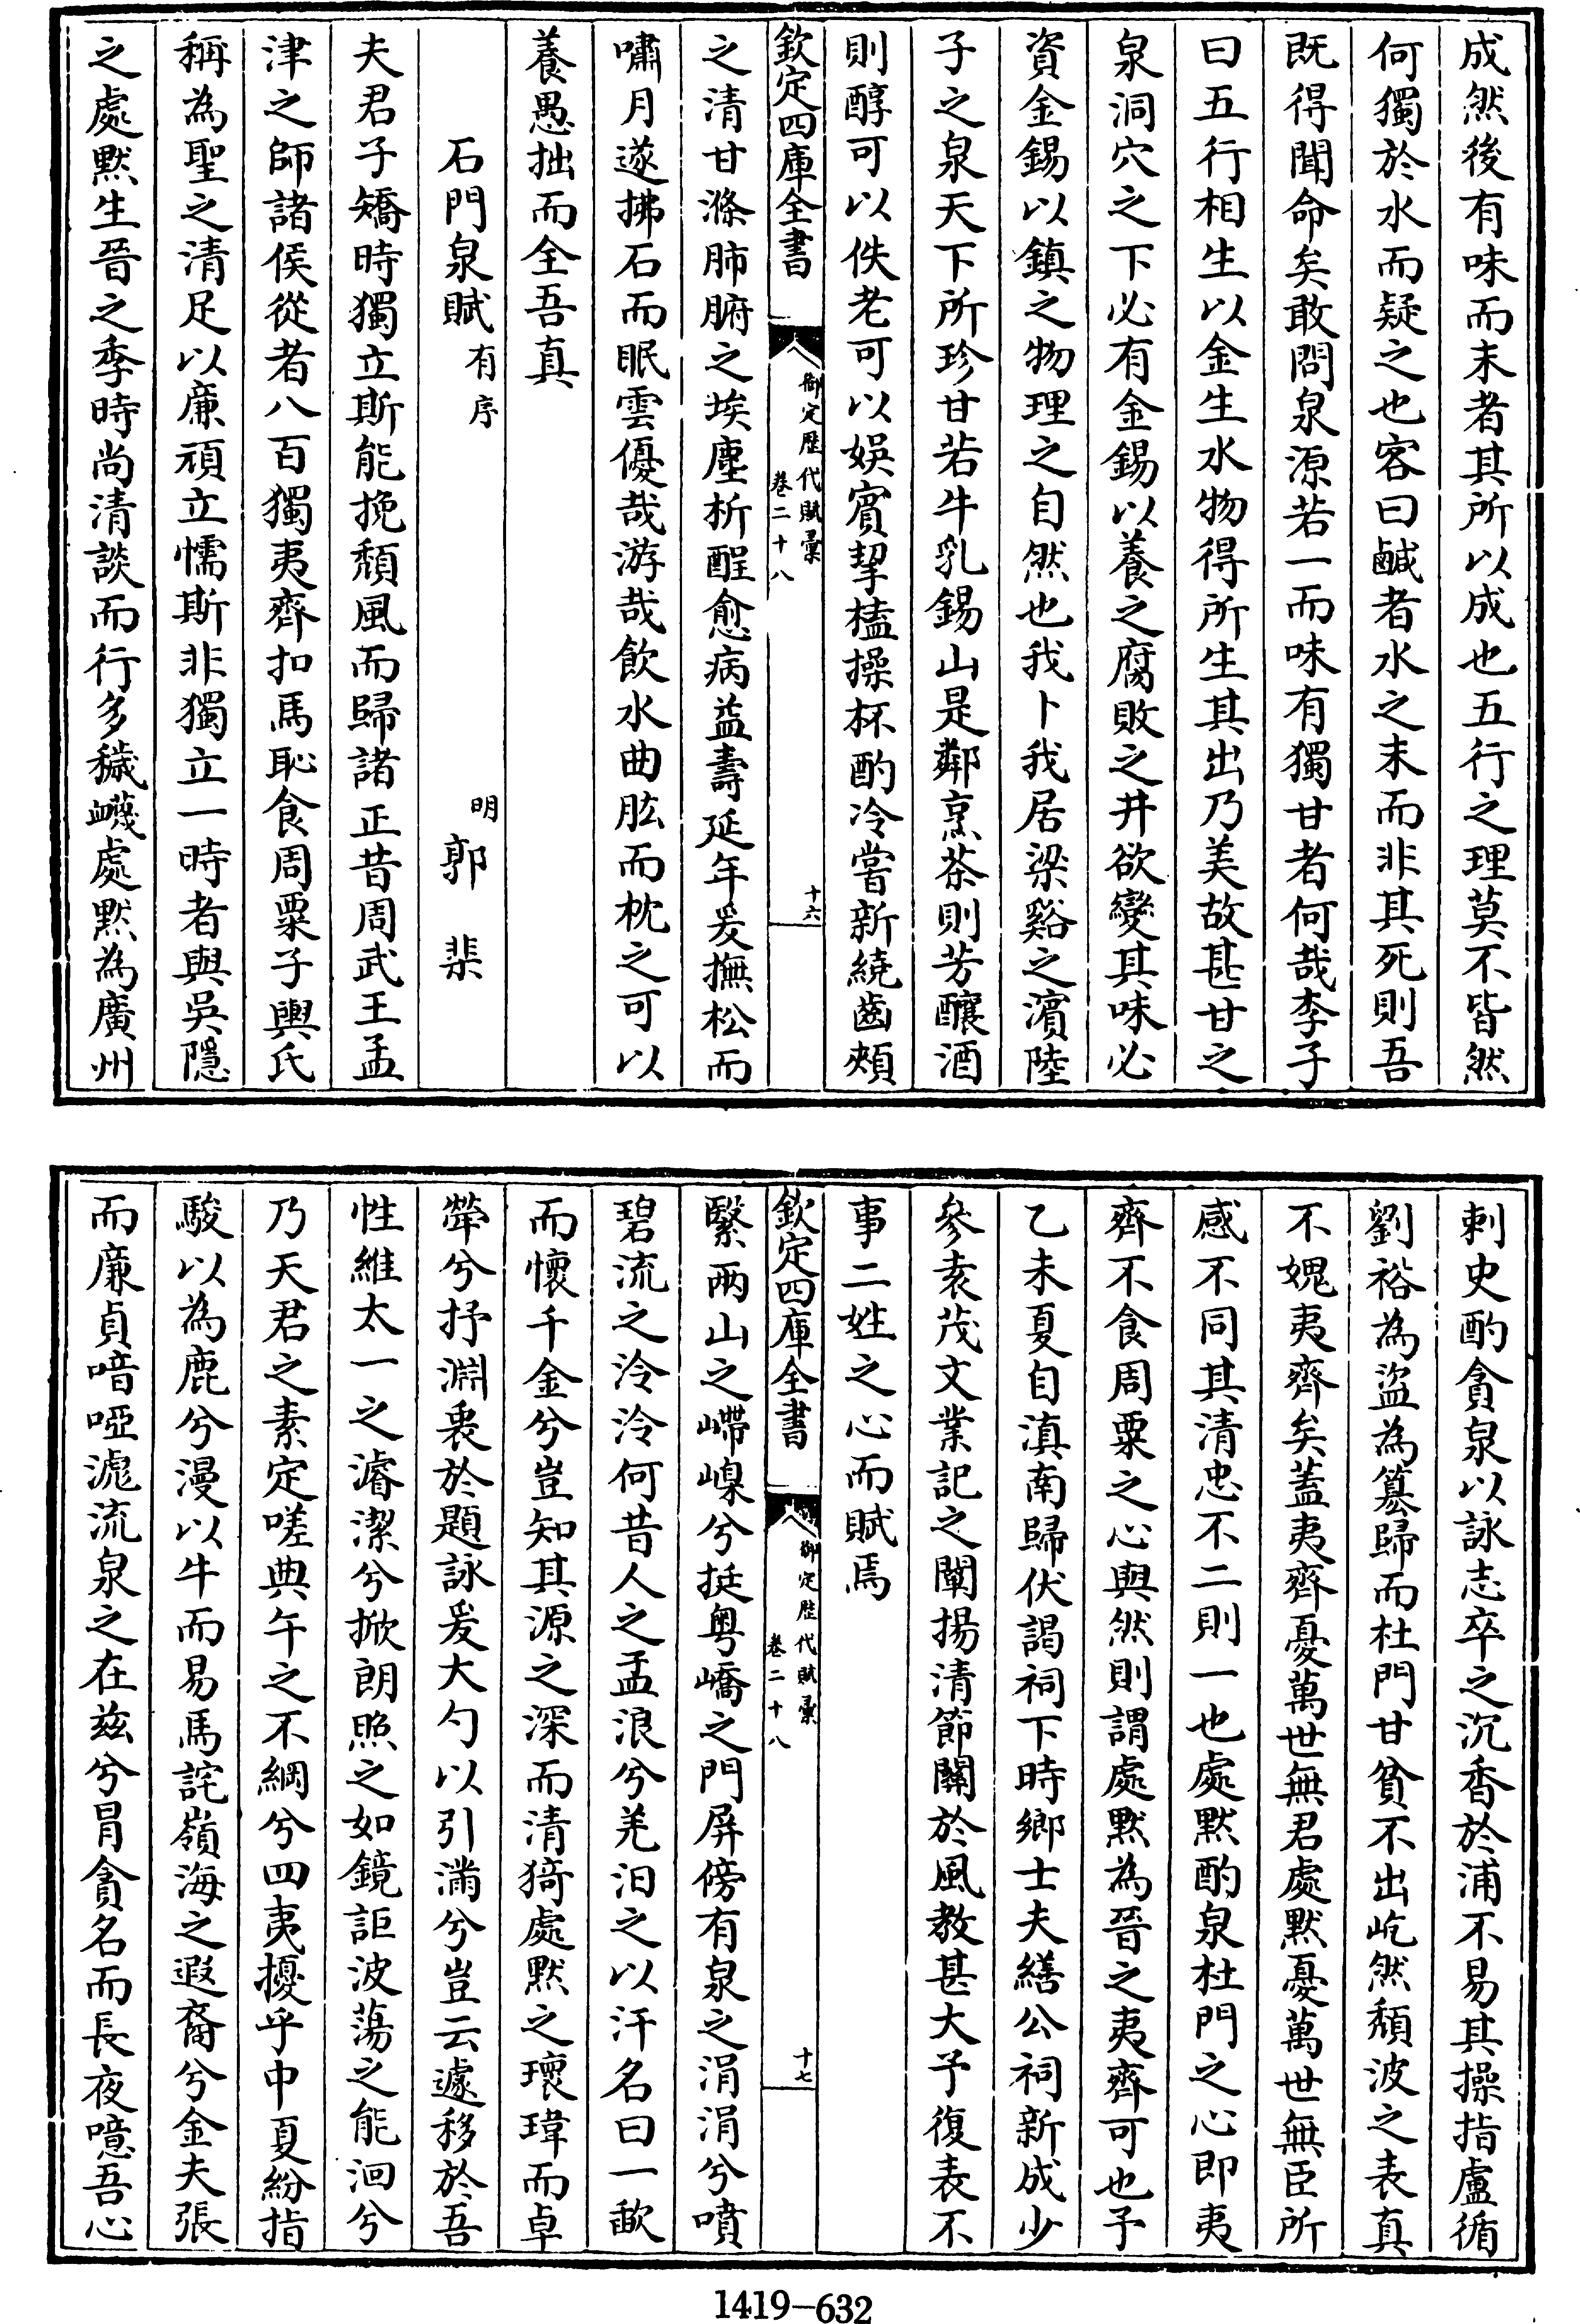 成然後有味而末者其所以成也五行之理莫不皆然
何獨於水而疑之也客曰鹹者水之末而非其死則吾
既得聞命矣敢問泉源若一而味有獨甘者何哉李子
曰五行相生以金生水物得所生其出乃美故甚甘之
泉洞穴之下必有金錫以養之腐敗之井欲變其味必
資金錫以鎮之物理之自然也我卜我居梁谿之濱陸
子之泉天下所珍甘若牛乳錫山是鄰烹茶則芳釀酒
則醇可以佚老可以娛賓挈榼操杯酌冷嘗新繞齒頰
欽定四庫全書
御定歷代賦彙
卷二十八
十六
之清甘滌肺腑之埃塵析酲愈病益壽延年爰撫松而
嘯月遂拂石而眠雲優哉游哉飲水曲肱而枕之可以
養愚拙而全吾真
石門泉賦有序
明郭棐
夫君子矯時獨立斯能挽頹風而歸諸正昔周武王孟
津之師諸侯從者八百獨夷齊扣馬恥食周粟子輿氏
稱為聖之清足以廉頑立懦斯非獨立一時者與吳隱
之處默生晉之季時尚清談而行多穢衊處默為廣州
刺史酌貪泉以詠志卒之沉香於浦不易其操指盧循
劉裕為盜為篡歸而杜門甘貧不出屹然頹波之表真
不媿夷齊矣蓋夷齊憂萬世無君處默憂萬世無臣所
感不同其清忠不二則一也處默酌泉杜門之心即夷
齊不食周粟之心與然則謂處默為晉之夷齊可也予
乙未夏自滇南歸伏謁祠下時鄉士夫繕公祠新成少
參袁茂文業記之闡揚清節關於風教甚大予復表不
事二姓之心而賦焉
欽定四庫全書
御定歷代賦彙
卷二十八
十七
繄兩山之嵽嵲兮挺粵嶠之門屏傍有泉之涓涓兮噴
碧流之泠泠何昔人之孟浪兮羌汨之以汙名曰一歃
而懷千金兮豈知其源之深而清猗處默之瓌瑋而卓
犖兮抒淵衷於題詠爰大勺以引滿兮豈云遽移於吾
性維太一之濬潔兮掀朗照之如鏡詎波蕩之能洄兮
乃天君之素定嗟典午之不綱兮四夷擾乎中夏紛指
駿以為鹿兮漫以牛而易馬詫嶺海之遐裔兮金夫張
而廉貞喑啞滮流泉之在兹兮冒貪名而長夜噫吾心
1419-632